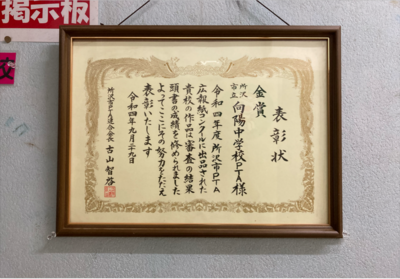 掲示板
表彰状
金賞
所沢市立 向陽中学校PTA様
令和四年度 所沢市PTA
広報紙コンクールに出品された
貴校の作品は審査の結果
頭書の成績を修められました
よってここにその努力をたたえ
表彰いたします
令和四年九月二十九日
所沢市PTA連合会会長 古山智啓